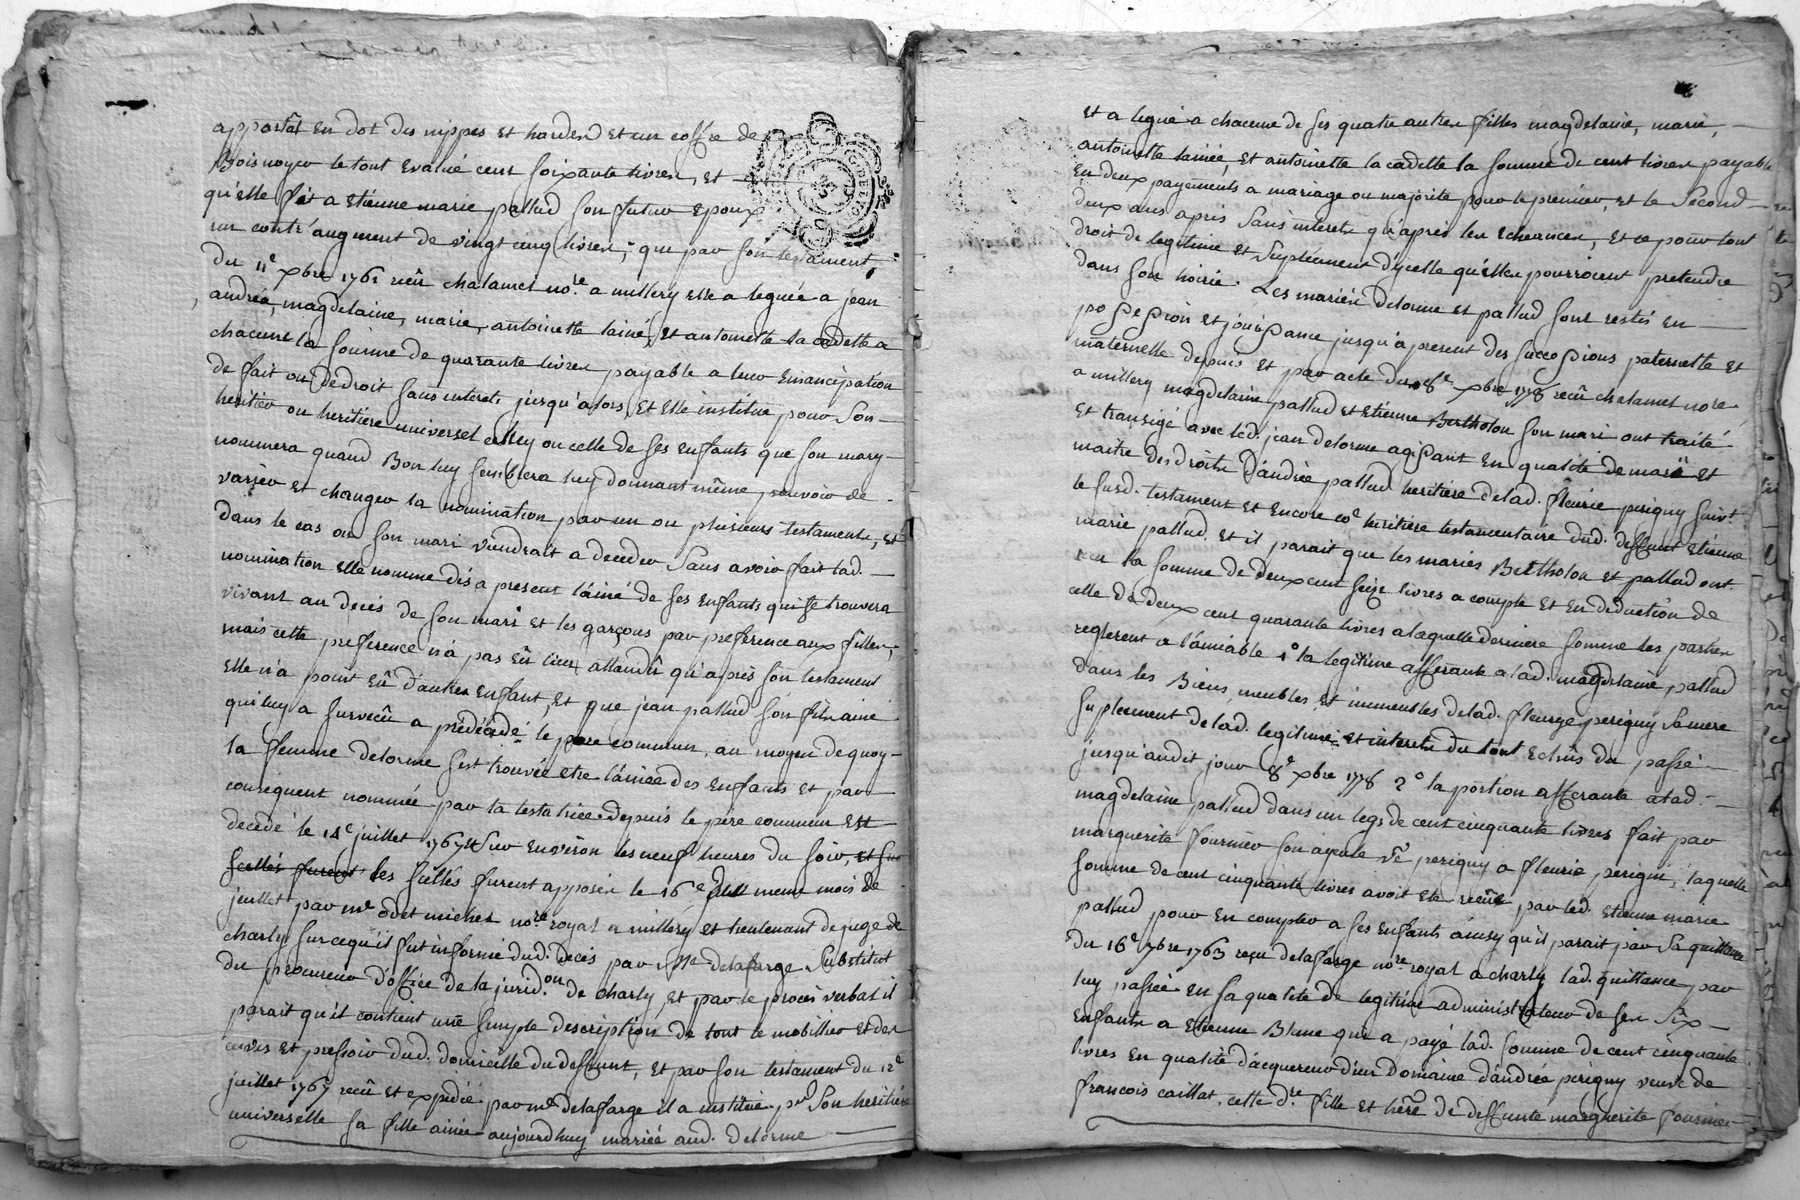 apportât en dot des nippes et hardes et un coffre de
Bois noyer le tout evalué cent soixante livres, et
qu'elle fit a etienne marie pallud son futur epoux
un contr'augment de vingt cinq livres; que par son testament,
du 11e xbre 1761 reçû chalamel nore. a millery elle a leguée a jean
andrée, magdelaine, marie, antoinette lainé, et antoinette la cadette a
chacune la somme de quarante livres payable a leur emancipation
de fait ou de droit sans interets jusqu'alors, et elle institue pour son
heritier ou heritiere universel celuy ou celle de ses enfants que son mary
nommera quand Bon luy semblera luy donnant même pouvoir de
varier et changer la nomination par un ou plusieurs testaments, et
dans le cas ou son mari viendrait a deceder sans avoir fait lad.
nomination elle nomme dés a present l'ainé de ses enfants qui se trouvera
vivant au decés de son mari et les garçons par preference aux filles,
mais cette preference n'a pas eû lieu attendû qu'aprés son testament
elle n'a point eû d'autres enfant, et que jean pallud son fils ainé
qui luy a survecû a prédécédé le pere commun, au moyen de quoy
la femme delorme s'est trouvée etre l'ainée des enfants et par
consequent nommée par la testatrice. depuis le pere commun est
decedé le 14e juillet 1767 sur environ les neuf heures du soir, et les
scellés furent les scellés furent apposés le 16e du meme mois de
juillet par me odet michel nore. royal a millery et lieutenant de juge de
charly sur ce qu'il fut informé dud. decés par me delafarge substitut
du procureur d'office de la jurid.on de charly, et par le procés verbal il
parait qu'il contient une simple description de tout le mobillier et des
cuves et pressoir dud. domicille du deffunt, et par son testament du 12e
juillet 1767 reçû et expédié par me delaffarge il a institué pr. son heritiere
universelle sa fille ainée aujourdhuy mariée aud. delorme
et a legué a chacune de ses quatre autres filles magdelaine, marie,
antoinette lainée, et antoinette la cadette la somme de cent livres payable
en deux payements a mariage ou majorite pour le premier, et le second
deux ans aprés sans interets qu'aprés les echeances, et ce pour tout
droit de legitime et supleément d'ycelle qu'elles pourroient pretendre
dans son hoirie. Les mariés delorme et pallud sont restés en
possession et jouissance jusqu'a present des successions paternelle et
maternelle depuis et par acte du 8e xbre 1778 reçû chalamel nore.
a millery magdelaine pallud et etienne Bertholon son mari ont traité
et transigé avec led. jean delorme agissant en qualité de mari et
maitre des droits d'andrée pallud heritiere delad. fleurie perigny suivt.
le susd. testament et encore coe heritiere testamentaire dud. deffunt etienne
marie pallud, et il parait que les mariés Bertholon et pallud ont
la somme de deux cent seize livres a compte et en deduction de
celle de deux cent quarante livres a laquelle derniere somme les parties
reglerent a l'amiable 1o la legitime afferante a lad. magdelaine pallud
dans les Biens meubles et immeubles delad. fleurye perigny sa mere
suplement delad. legitime et interets du tout echûs du passé
jusqu'audit jour 8e xbre 1778 2o la portion afferante a lad.
magdelaine pallud dans un legs de cent cinquante livres fait par
marguerite fournier son ayeule ve. perigny a fleurie perigny, laquelle
somme de cent cinquante livres avoit eté reçûe par led. etienne marie
pallud pour en compter a ses enfants ainsy qu'il parait par sa quittance
du 16e 7bre 1763 reçu delafarge nore. royal a charly lad. quittance par
luy passée en sa qualité de legitime administrateur de ses six
enfants a etienne Blanc qui a payé lad. somme de cent cinquante
livres en qualité d'acquereur d'un domaine d'andrée perigny veuve de
francois caillat, cette dre. fille et here. de deffunte marguerite fournier